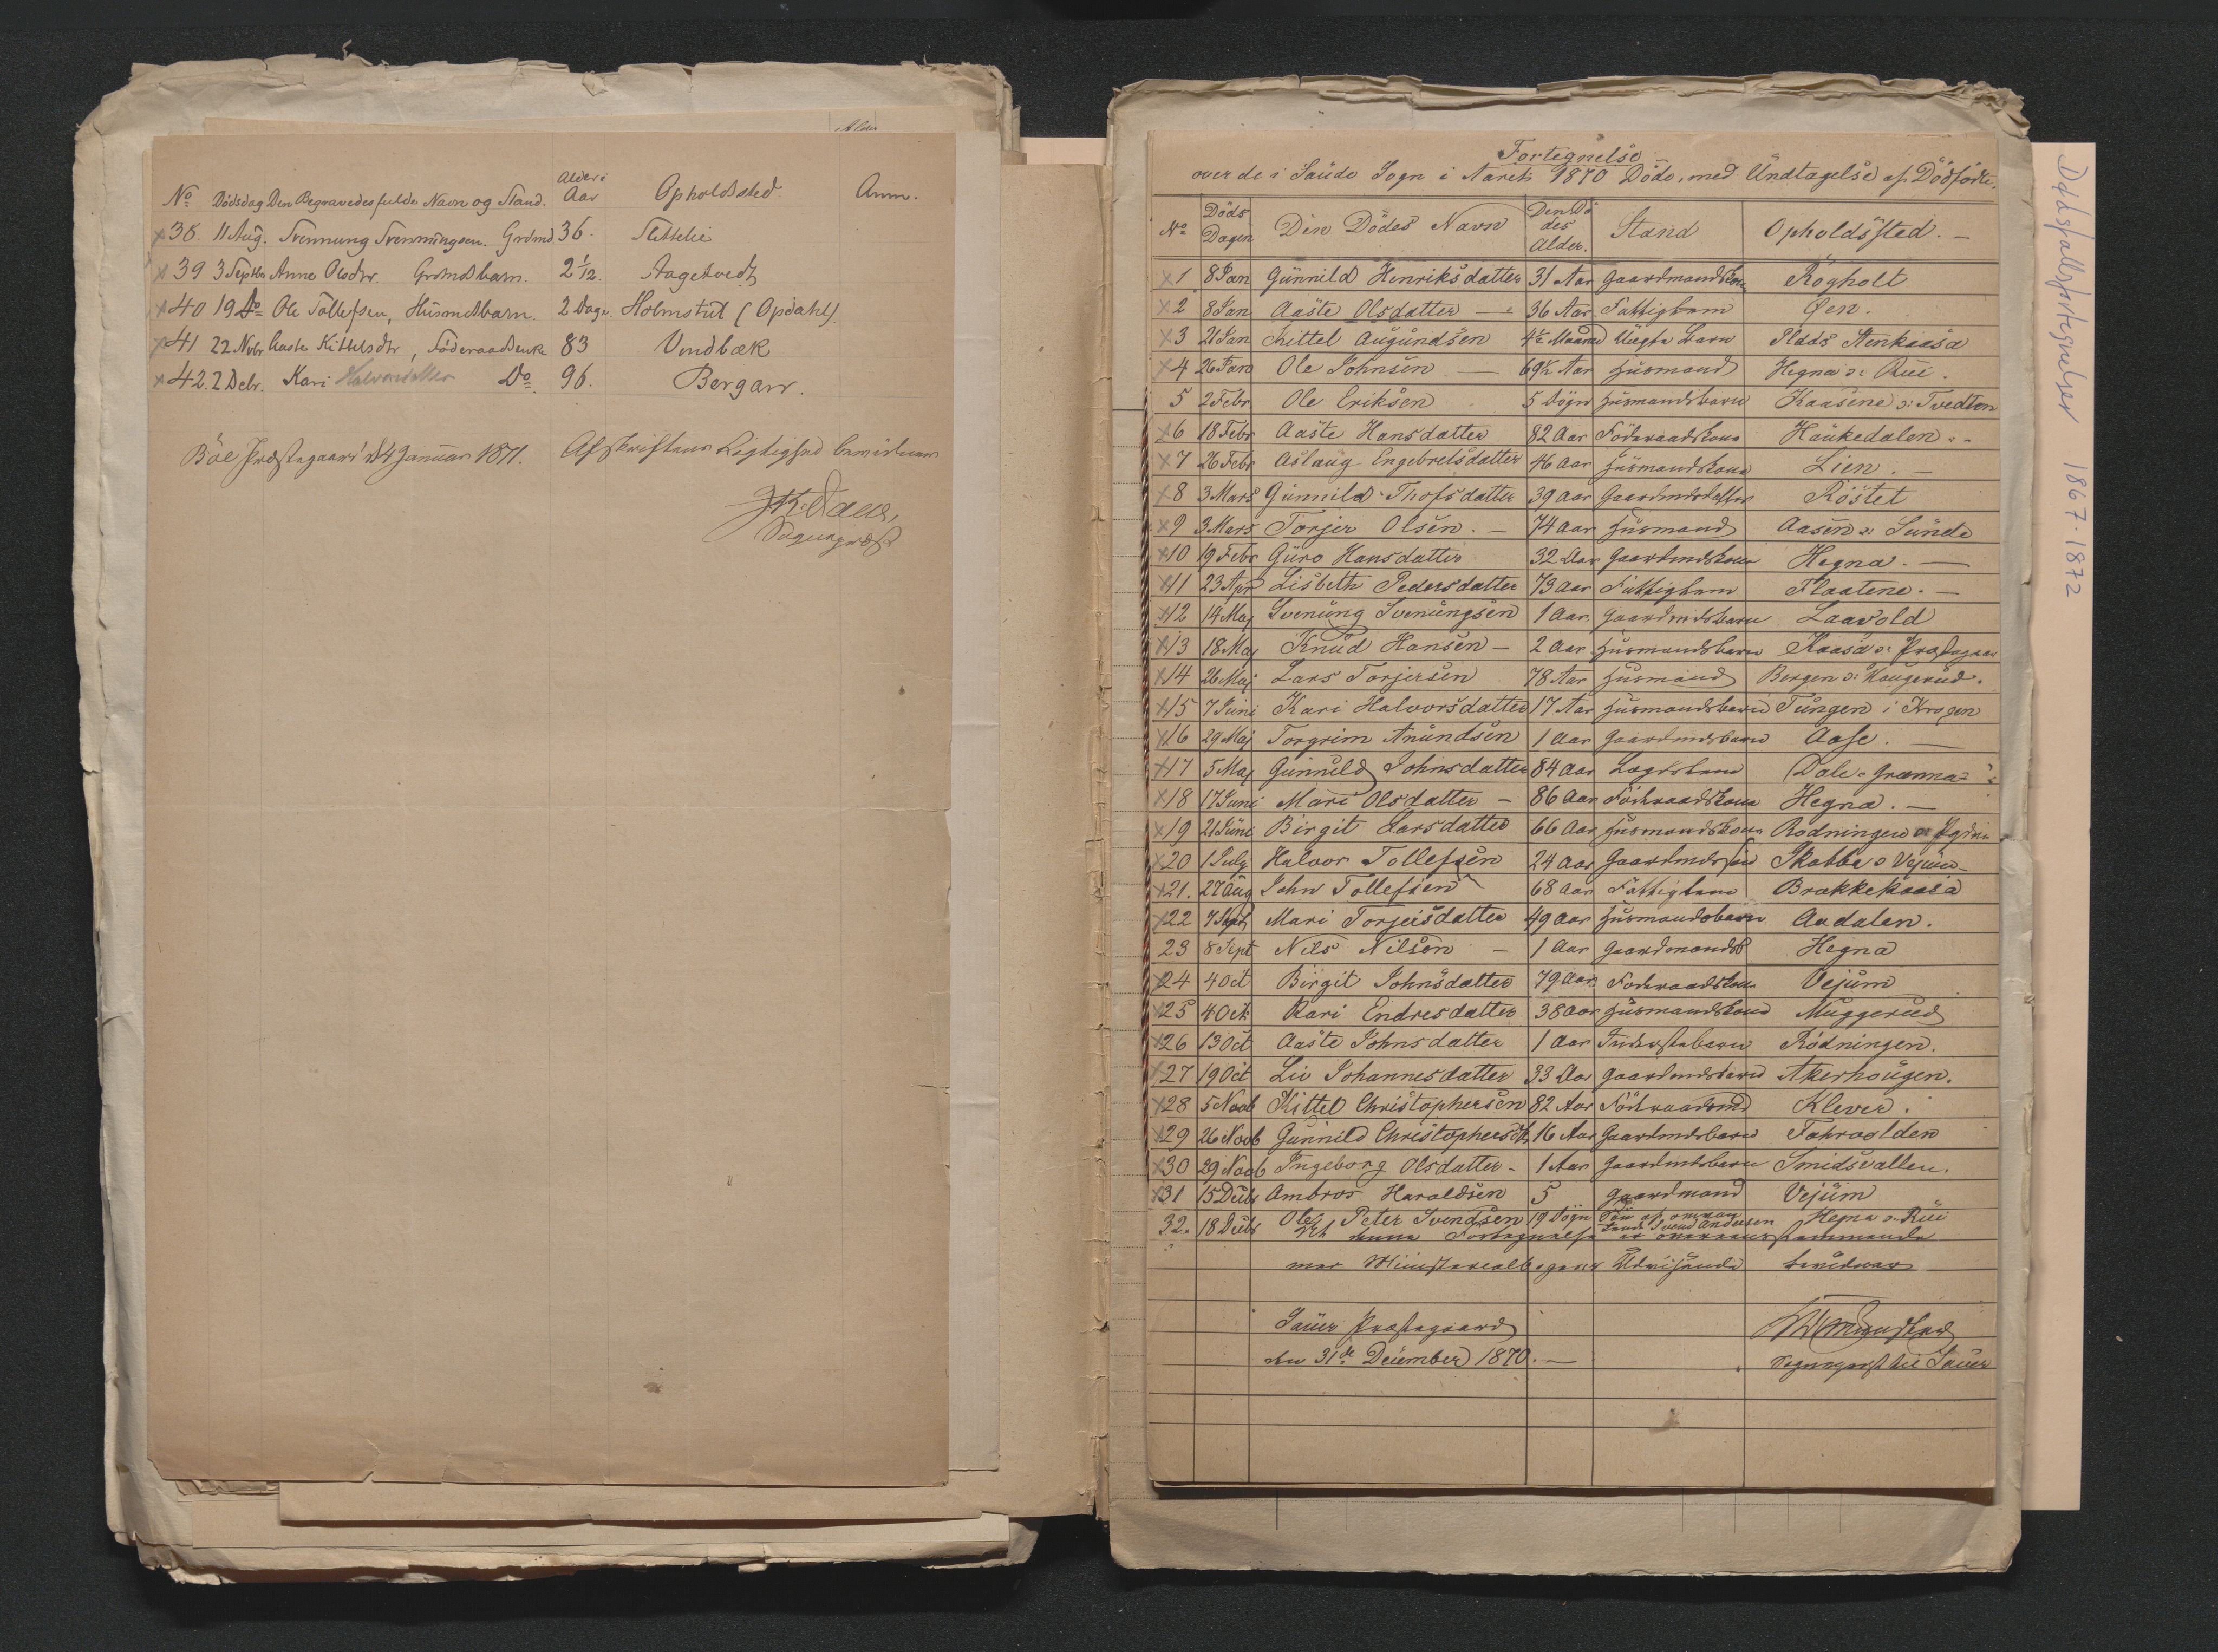 Alder
Alder i
No Dødsdag Den Begravedes fulde Navn og Stand. Aar Opholdssted. Anm.
x 38. 11 Aug. Svennung Svenningsen. Grdmd. 36. Slettelie
x 39 3 Septbr Anne Olsdtr. Grdmdsbarn. 2 1/12. Aagetvedt
x 40 19 Do Ole Tollefsen, Husmdsbarn. 2 Dage. Holmstut (Opdahl).
x 41 22 Novbr Aaste Kittelsdtr, Föderaadsenke 83 Vindbæk
x 42. 2 Debr. Kari Halvorsdatter Do 96. Bergan.
Böe Præstegaard d 4 Januar 1871. Afskriftens Rigtighed bevidnes
Sogneprest
Fortegnelse
over de i Saude Sogn i Aaret 1870 Döde, med Undtagelse af Dödfödte.
No Döds Dagen Den Dödes Navn Den Dödes Alder. Stand Opholdssted. —
x 1 8 Jan Gunnild Henriksdatter 31 Aar Gaardmandskone Rögholt
x 2 8 Jan Aaste Olsdatter — 36 Aar Fattiglem Öen.
x 3 21 Jan Kittel Augundsen 4½ Maaned Uægte Barn Plads Stenkaasa
x 4 26 Jan Ole Johnsen — 69½ Aar Husmand Hegna o: Rui.
5 2 Febr. Ole Eriksen 5 Dögn Husmandsbarn Kaasene o: Tvedten
x 6 18 Febr Aaste Hansdatter 82 Aar Föderaadskone Haukedalen. -
x 7 26 Febr Aslaug Engebretsdatter 46 Aar Husmandskone Lien. —
x 8 3 Mars Gunnild Thofsdatter 39 Aar Gaardmdsdatter Röstet
x 9 3 Mars Torjer Olsen. — 74 Aar Husmand Aasen o: Sunde
x 10 19 Febr Guro Hansdatter 32 Aar Gaardmdskone Hegna. —
x 11 23 Apr Lisbeth Pedersdatter 73 Aar Fattiglem Flaatene. —
x 12 14 Maj Svenung Svenungsen 1 Aar. Gaardmdsbarn Laavold
x 13 18 Maj Knud Hansen — 2 Aar Husmandsbarn Kaasa o: Præstegaar
x 14 26 Maj Lars Torjersen 78 Aar Husmand Bergen o: Haugerud.
x 15 7 Juni Kari Halvorsdatter 17 Aar Husmandsbarn Tungen i Krogen
x 16 29 Maj Torgrim Anundsen 1 Aar Gaardmdsbarn Aase. —
x 17 5 Maj Gunnild Johnsdatter 84 Aar Lægdslem Dale
x 18 17 Juni Mari Olsdatter — 86 Aar Föderaadskone Hegna. —
x 19 21 Juni Birgit Larsdatter 66 Aar Husmandskone Rodningen
x 20 1 July Halvor Tollefsen 24 Aar Gaardmdssön Skobba o Vejum
x 21. 27 Aug John Tollefsen 68 Aar Fattiglem Brækkekaasa
x 22 7 Sept Mari Torjeisdatter 49 Aar Husmandsbarn Aadalen.
23 8 Sept Nils Nilsen — 1 Aar Gaardmandsb Hegna
x 24 4 Oct Birgit Johnsdatter 79 Aar Föderaadskone Vejum
x 25 4 Oct. Kari Endresdatter 38 Aar Husmandskone Muggerud
x 26 13 Oct Aaste Johnsdatter 1 Aar Inderstebarn Rödningen.
x 27 19 Oct Liv Johannesdatter 33 Aar Gaardmdsbarn Akerhaugen.
x 28 5 Novb Kittel Christophersen 82 Aar Föderaadsmd Klever.
x 29 26 Novb Gunnild Christophersdtr 16 Aar Gaardmdsbarn Fahrvolden
x 30 29 Novb Ingeborg Olsdatter - 1 Aar Gaardmdsbarn Smidsvallen.
x 31 15 Debr Ambros Haraldsen 5 Gaardmand Vejum
32. 18 Debr Ole Peter Svendsen 19 Dögn Sön af Svend Andersen Hegna o: Rui
At denne Fortegnelse er overensstemmende
med Ministerialbogens Udvisende bevidner
Sauer Præstegaard
den 31de December 1870. —
Sogneprest til Sauer
Dödsfallsfortegnelser 1867-1872